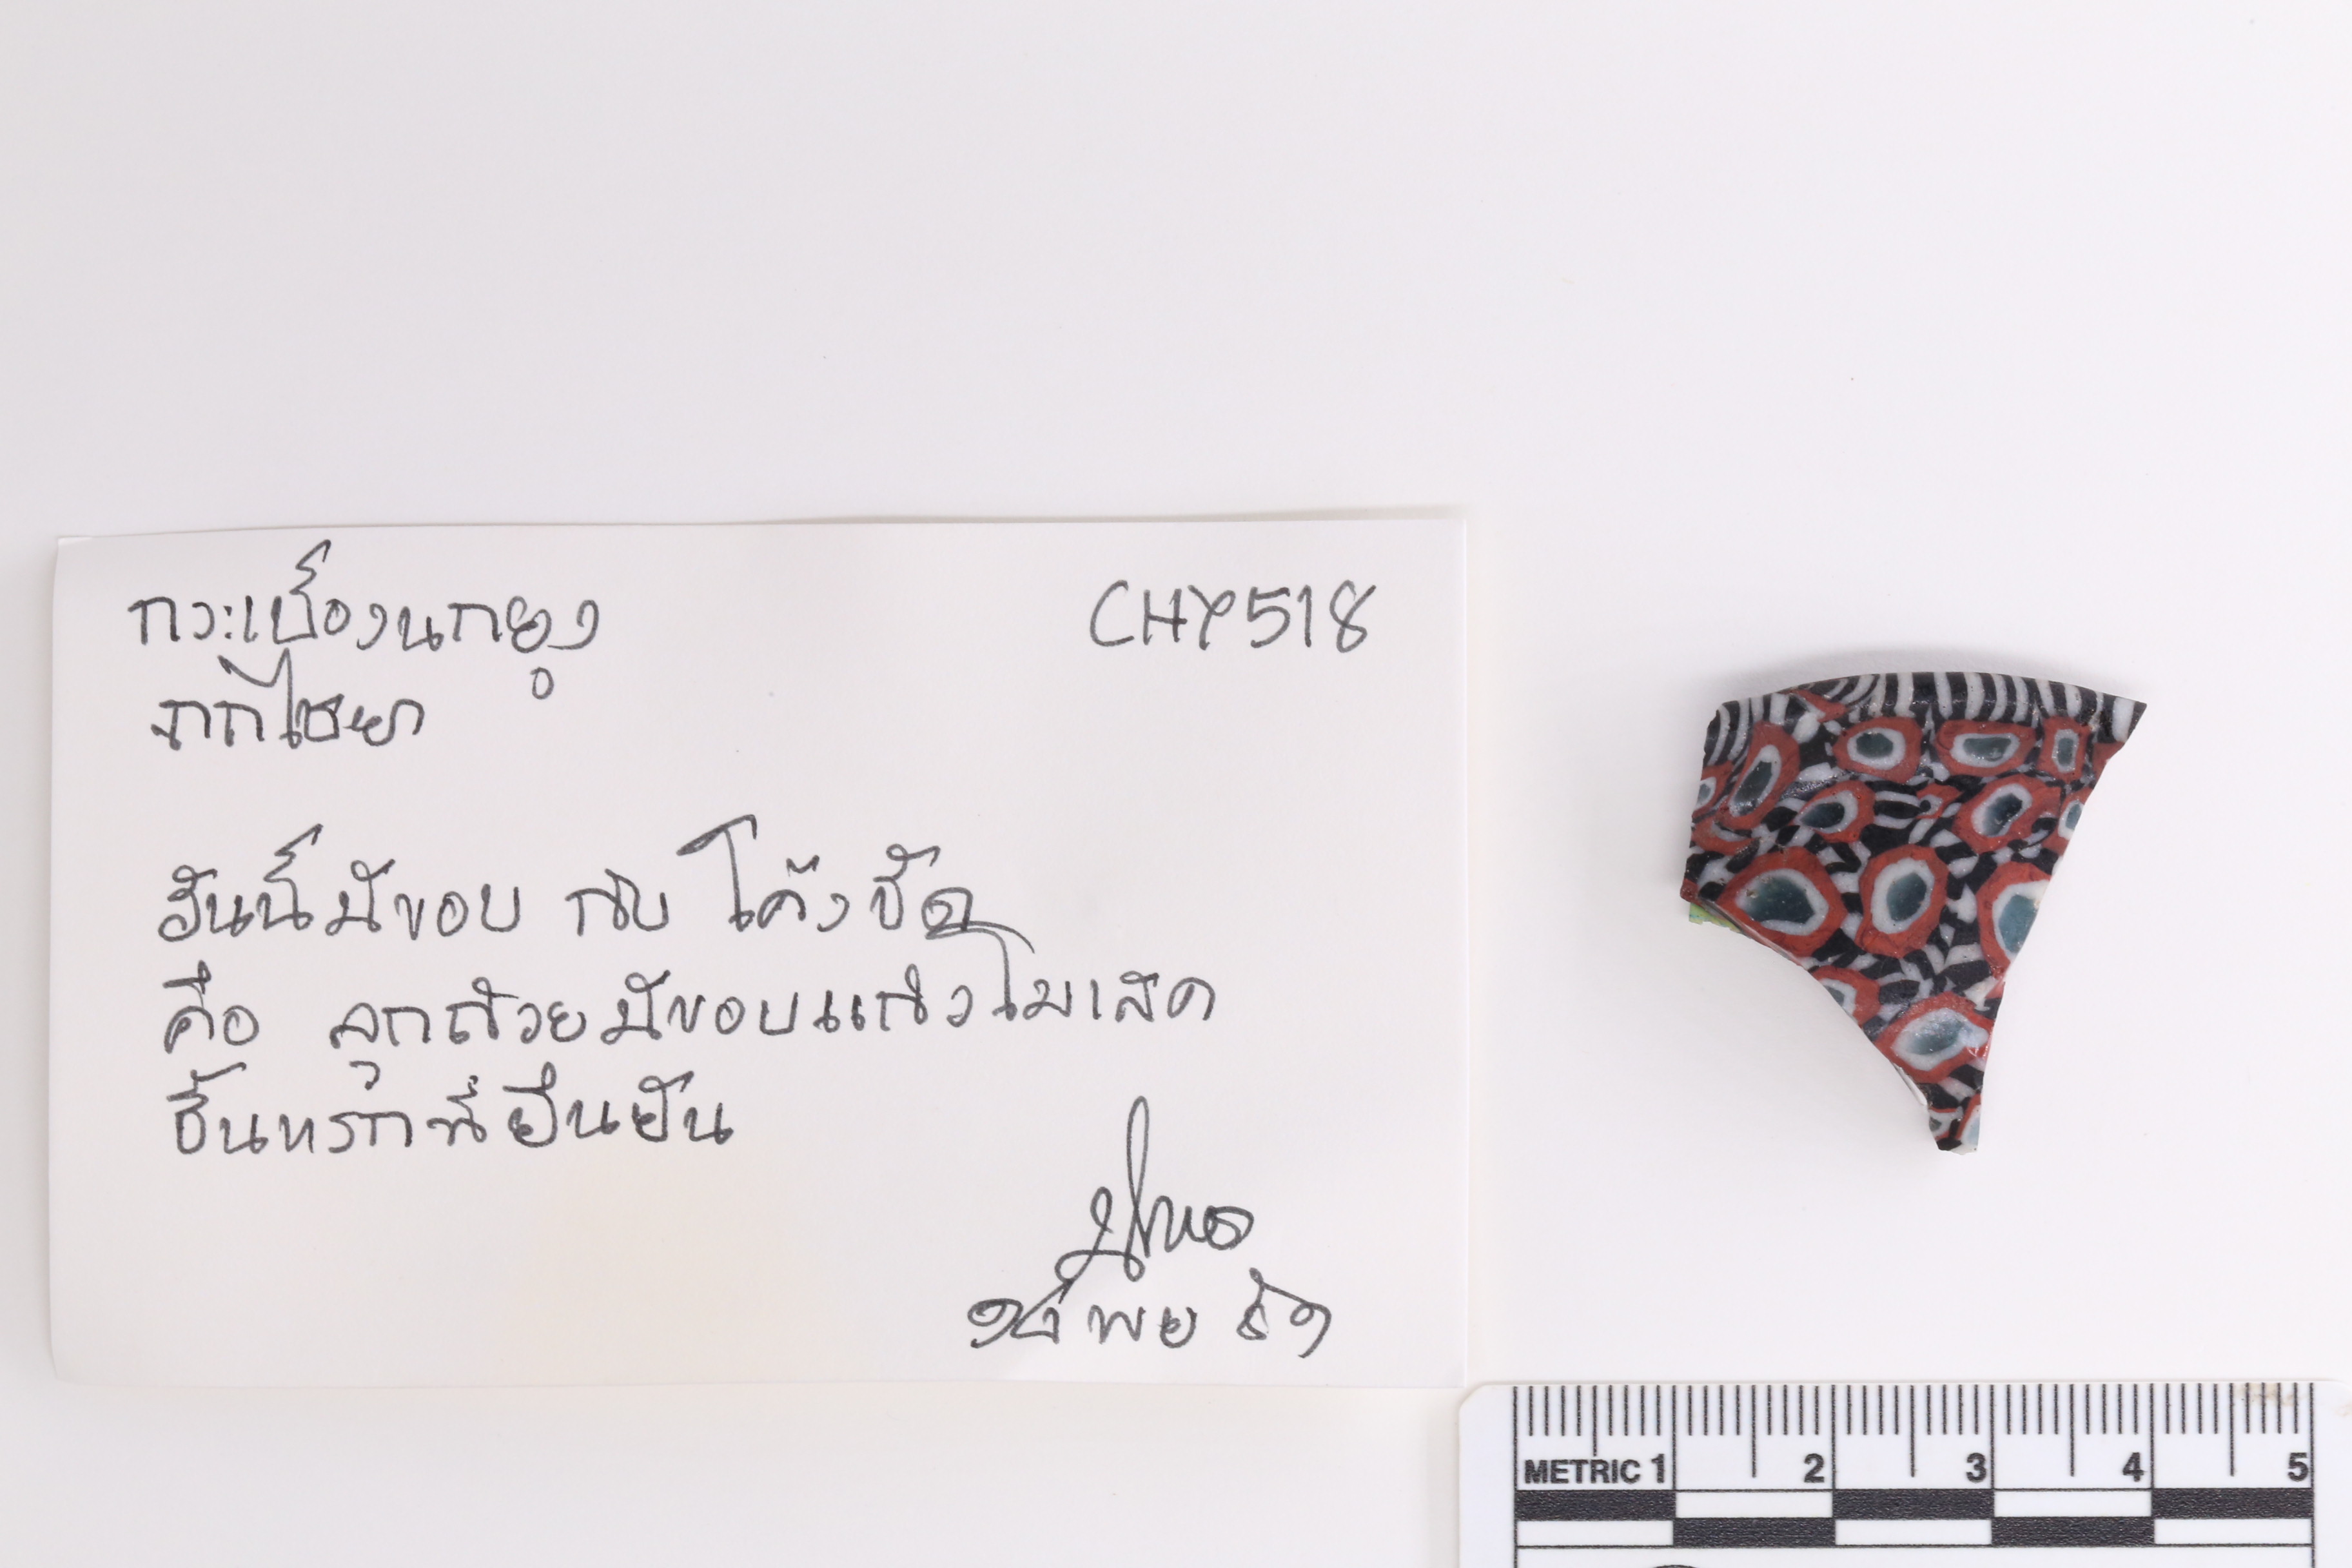 กระเบื้องนกยูง
จากไชยา
CHY518
อันนี้มีขอบ กับ โค้งชัด
คือ ลูกถ้วยมีขอบแก้วโมเสค
ชิ้นแรกที่ยืนยัน
พย
METRIC 1 2 3 4 5